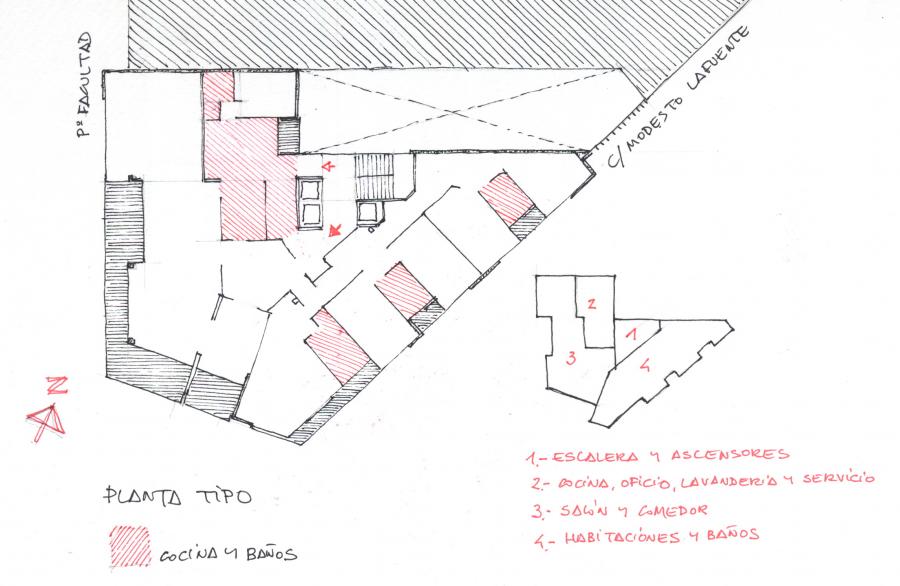 Pº FACULTAD
C/ MODESTO LAFUENTE
N
2
1
3
4
1.- ESCALERA Y ASCENSORES
2.- COCINA, OFICIO, LAVANDERIA Y SERVICIO
3.- SALÓN Y COMEDOR
4.- HABITACIÓNES Y BAÑOS
PLANTA TIPO
COCINA Y BAÑOS